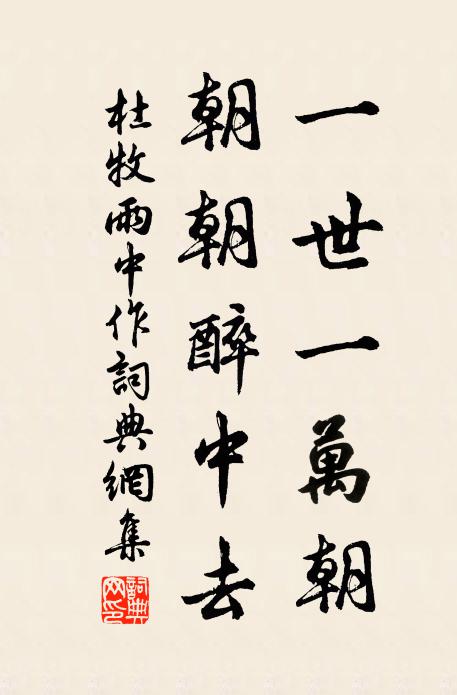 一世一萬朝
朝朝醉中去
杜牧雨中作詞典網集
詞典
网印